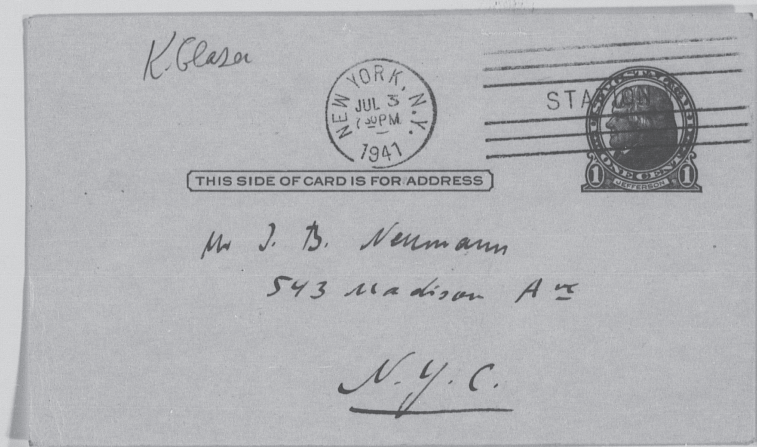 K. Glaser
NEW YORK, N.Y.
JUL 3
7 30 PM
1941
STATION
1 JEFFERSON 1
THIS SIDE OF CARD IS FOR ADDRESS
Mr J. B. Neumann
543 Madison Ave
N.Y.C.